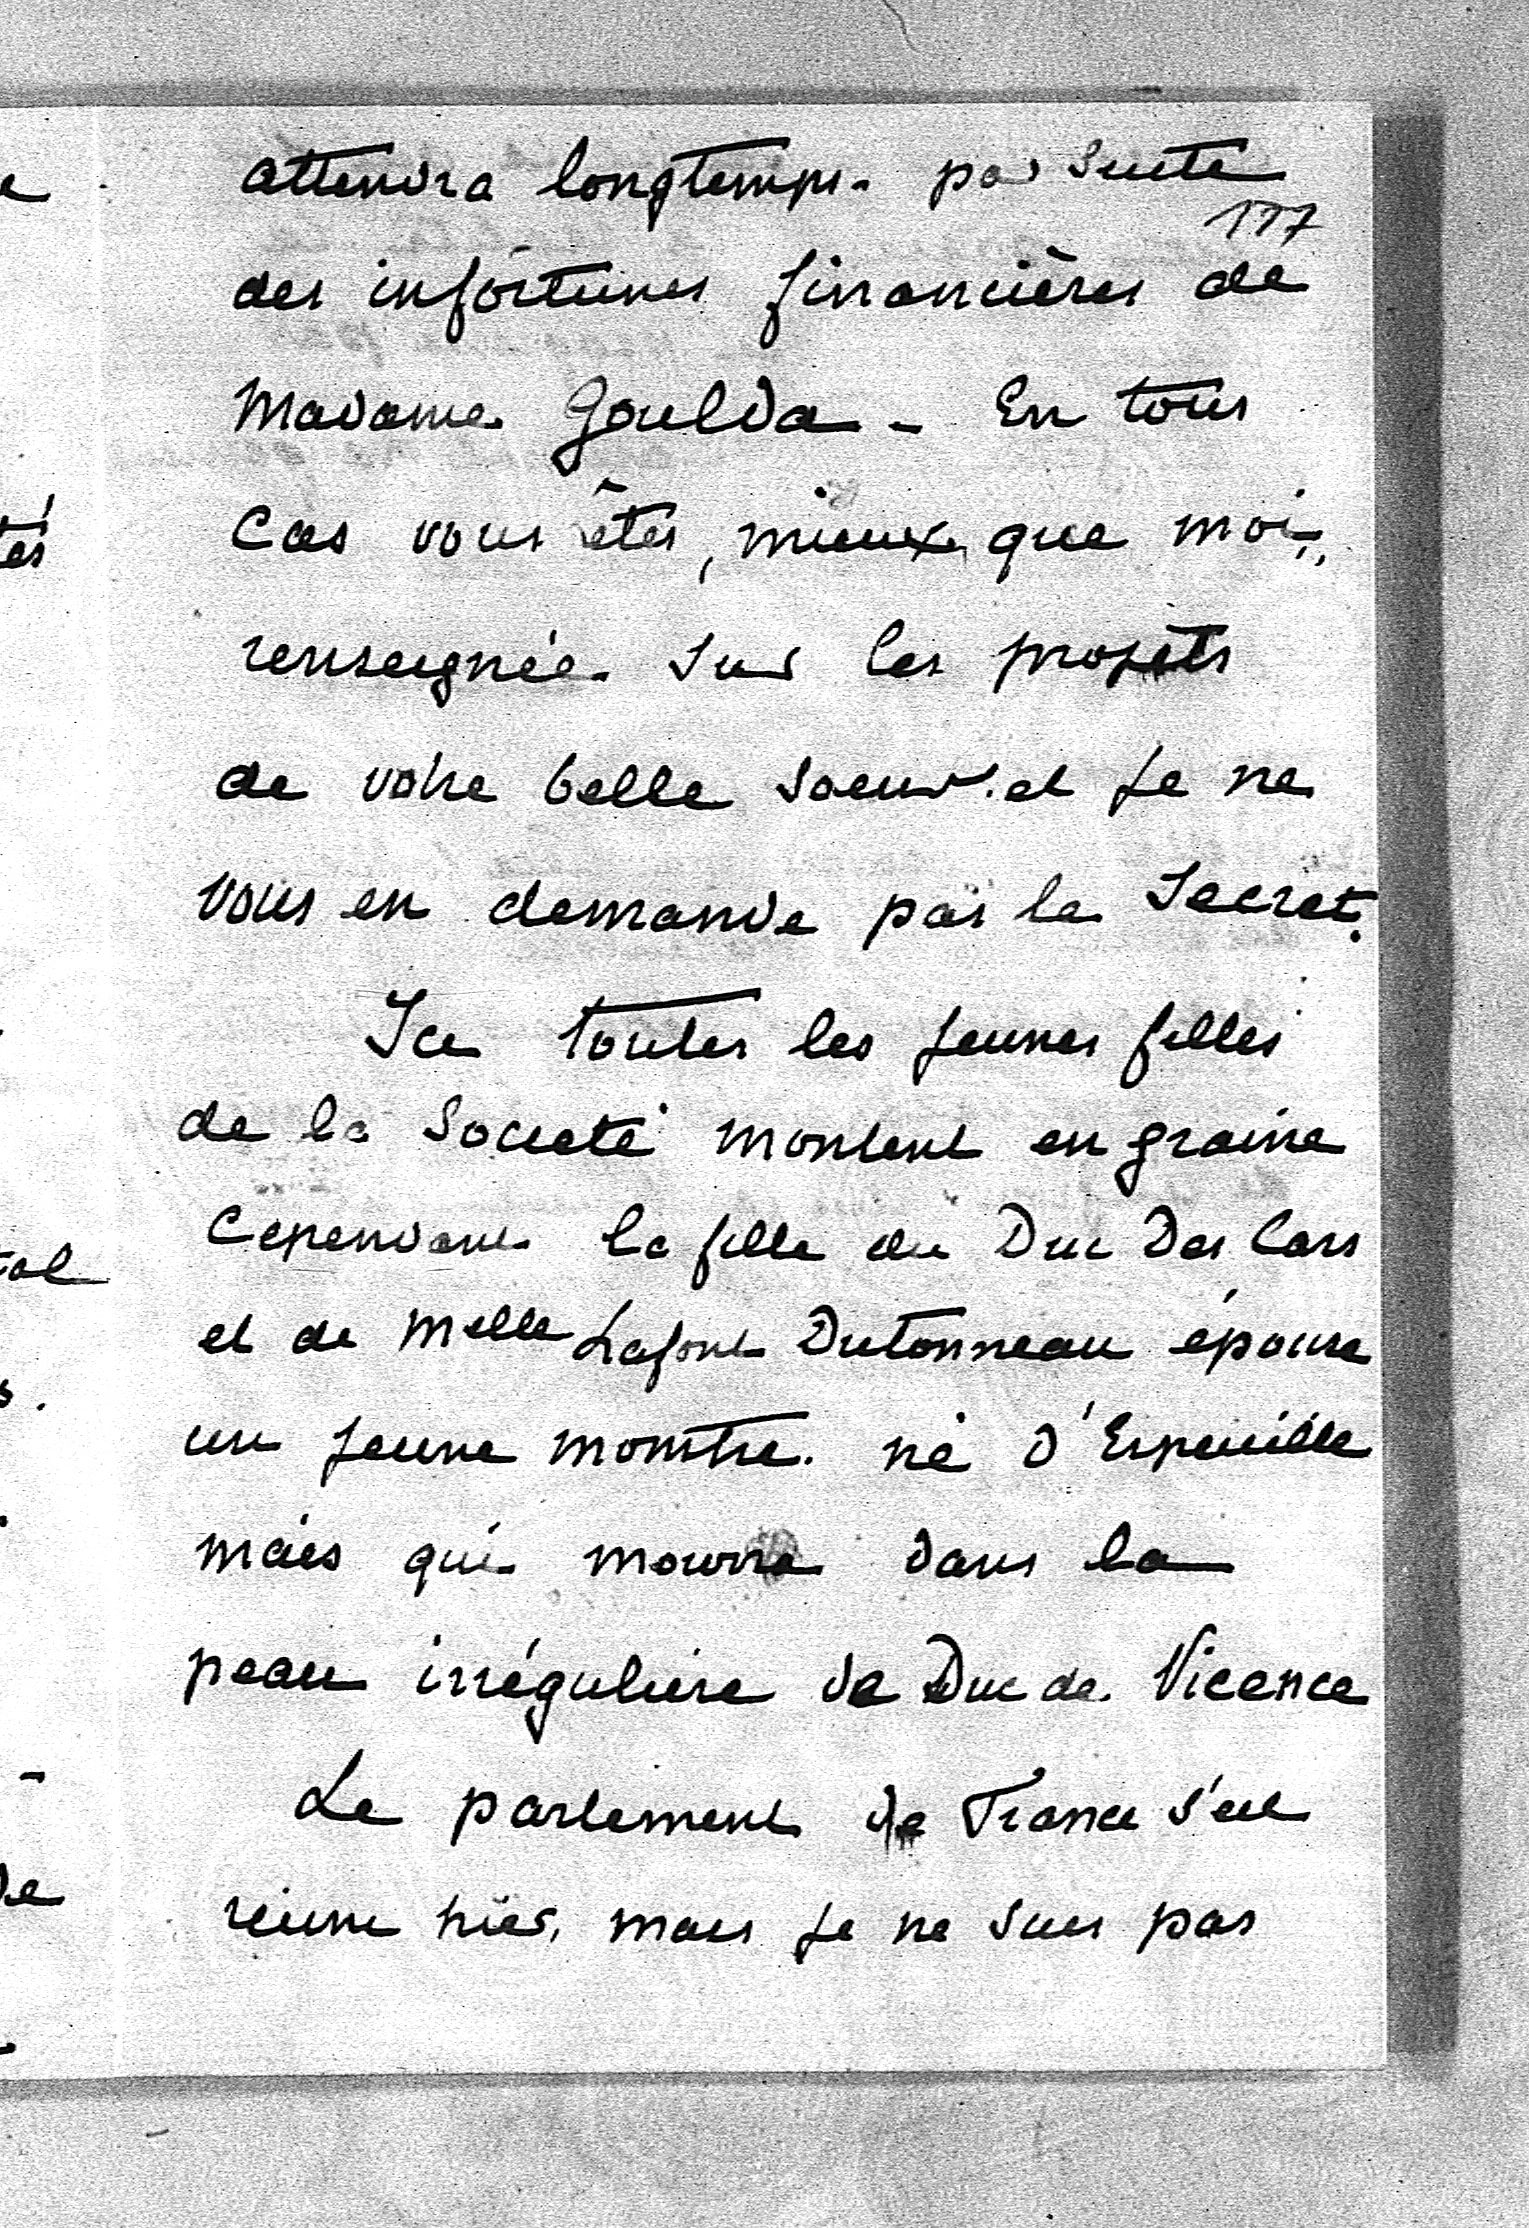 attendra longtemps par suite
117
des infortunes financières de
Madame Goulda - En tous
cas vous êtes, mieux que moi,
renseignée sur les projets
de votre belle soeur et je ne
vous en demande pas le secret.
Ici toutes les jeunes filles
de la Société montent en graine
Cependant la fille du Duc Des Cars
et de Melle Lafont Dutonneau épouse
un jeune monstre né d'Espeuille
mais qui mourra dans la
peau irrégulière de Duc de Vicence
Le parlement de France s'est
réuni hier, mais je ne suis pas